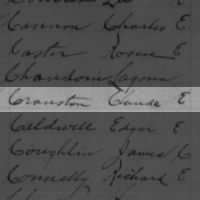 Cannon Charles E
Castor Roscoe E
Chaudoin Lagona
Cranston Claude E
Caldwell Edgar E
Coughlin James C
Connelly Richard E